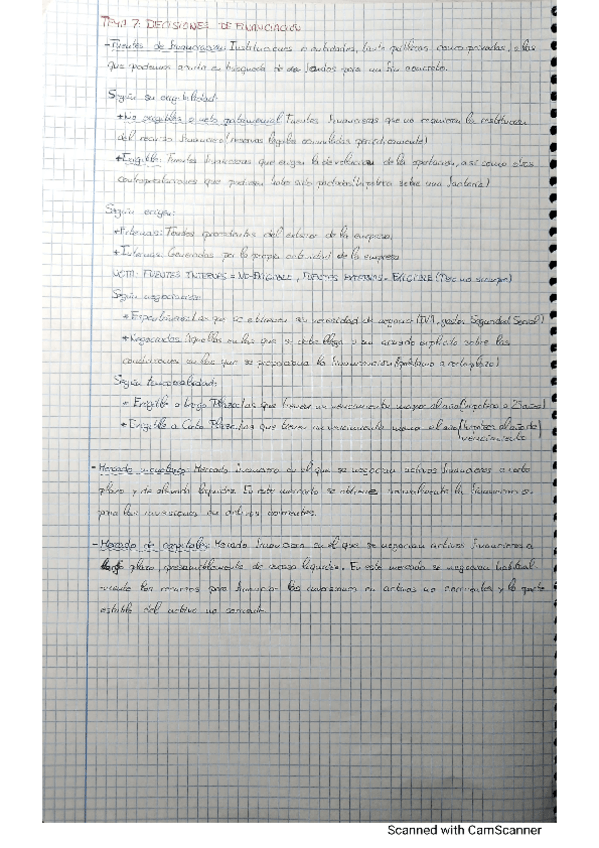 TEMA 7: DECISIONES DE FINANCIACIÓN
- Fuentes de financiación: Instituciones o entidades, tanto públicas como privadas, a las
que podemos acudir en búsqueda de fondos para un fin concreto.
Según su exigibilidad:
+ No exigibles o neto patrimonial: Fuentes financieras que no requieren la restitución
del recurso financiero (reservas legales acumuladas periódicamente)
+ Exigible: Fuentes financieras que exigen la devolución de la aportación, así como otras
contraprestaciones que podrían haber sido pactadas (hipoteca sobre una factoría)
Según origen:
+ Externas: Fondos procedentes del exterior de la empresa.
+ Internas: Generadas por la propia actividad de la empresa
NOTA: FUENTES INTERNAS = NO EXIGIBLE, FUENTES EXTERNAS = EXIGIBLE (Pero no siempre)
Según negociación:
+ Espontáneas: Las que se obtienen sin necesidad de negociar (IVA, gastos Seguridad Social)
+ Negociadas: Aquellas en las que se debe llegar a un acuerdo explícito sobre las
condiciones en las que se proporciona la financiación (préstamo a largo plazo)
Según temporalidad:
+ Exigible a Largo Plazo: Las que tienen un vencimiento mayor al año
+ Exigible a Corto Plazo: Las que tienen un vencimiento menor al año
vencimiento
- Mercado monetario: Mercado financiero en el que se negocian activos financieros a corto
plazo y de elevada liquidez. En este mercado se obtiene normalmente la financiación
para las inversiones en activos corrientes.
- Mercado de capitales: Mercado financiero en el que se negocian activos financieros a
largo plazo, presumiblemente de escasa liquidez. En este mercado se negocian habitual-
mente los recursos para financiar las inversiones en activos no corrientes y la parte
estable del activo no corriente.
Scanned with CamScanner